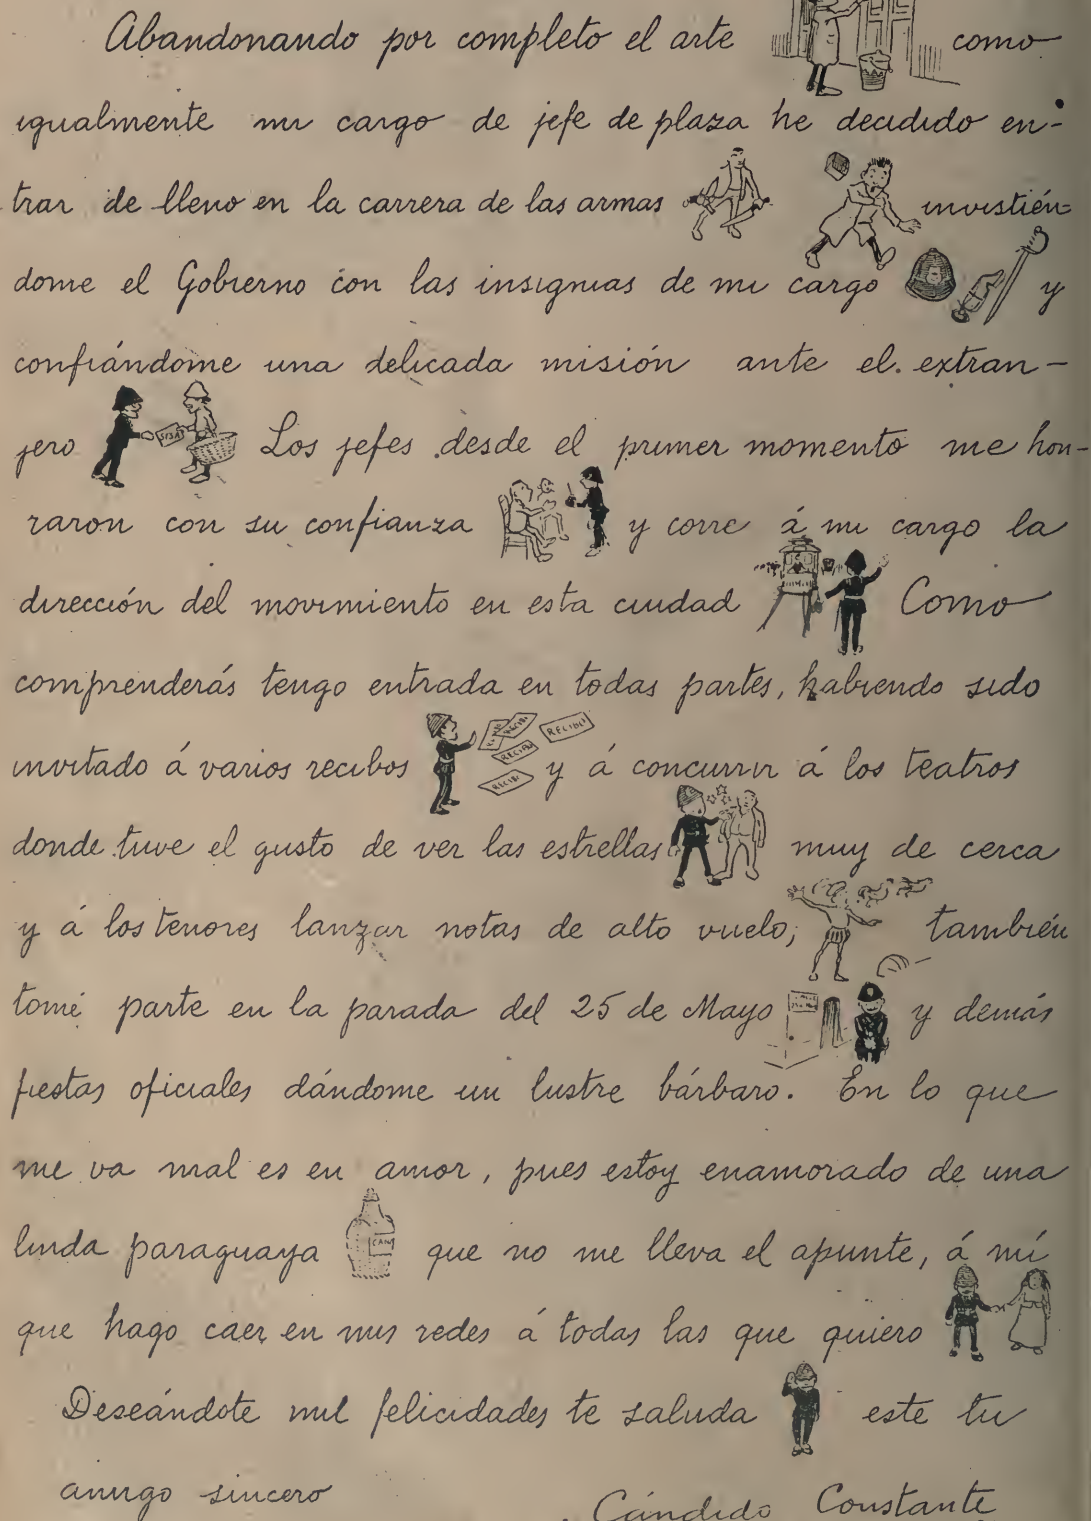 Abandonando por completo el arte como
igualmente mi cargo de jefe de plaza he decidido en-
trar de lleno en la carrera de las armas invistién=
dome el Gobierno con las insignias de mi cargo y
confiándome una delicada misión ante el extran-
jero Los jefes desde el primer momento me hon-
raron con su confianza y corre á mi cargo la
dirección del movimiento en esta ciudad Como
comprenderás tengo entrada en todas partes, habiendo sido
RECIBI RECIBI
RECIBI
invitado á varios recibos y á concurrir á los teatros
RECIBI
donde tuve el gusto de ver las estrellas muy de cerca
y á los tenores lanzar notas de alto vuelo; también
tomé parte en la parada del 25 de Mayo y demás
fiestas oficiales dándome un lustre bárbaro. En lo que
me va mal es en amor, pues estoy enamorado de una
linda paraguaya CAÑ que no me lleva el apunte, á mí
que hago caer en mis redes á todas las que quiero
Deseándote mil felicidades te saluda este tu
amigo sincero
Cándido Constante